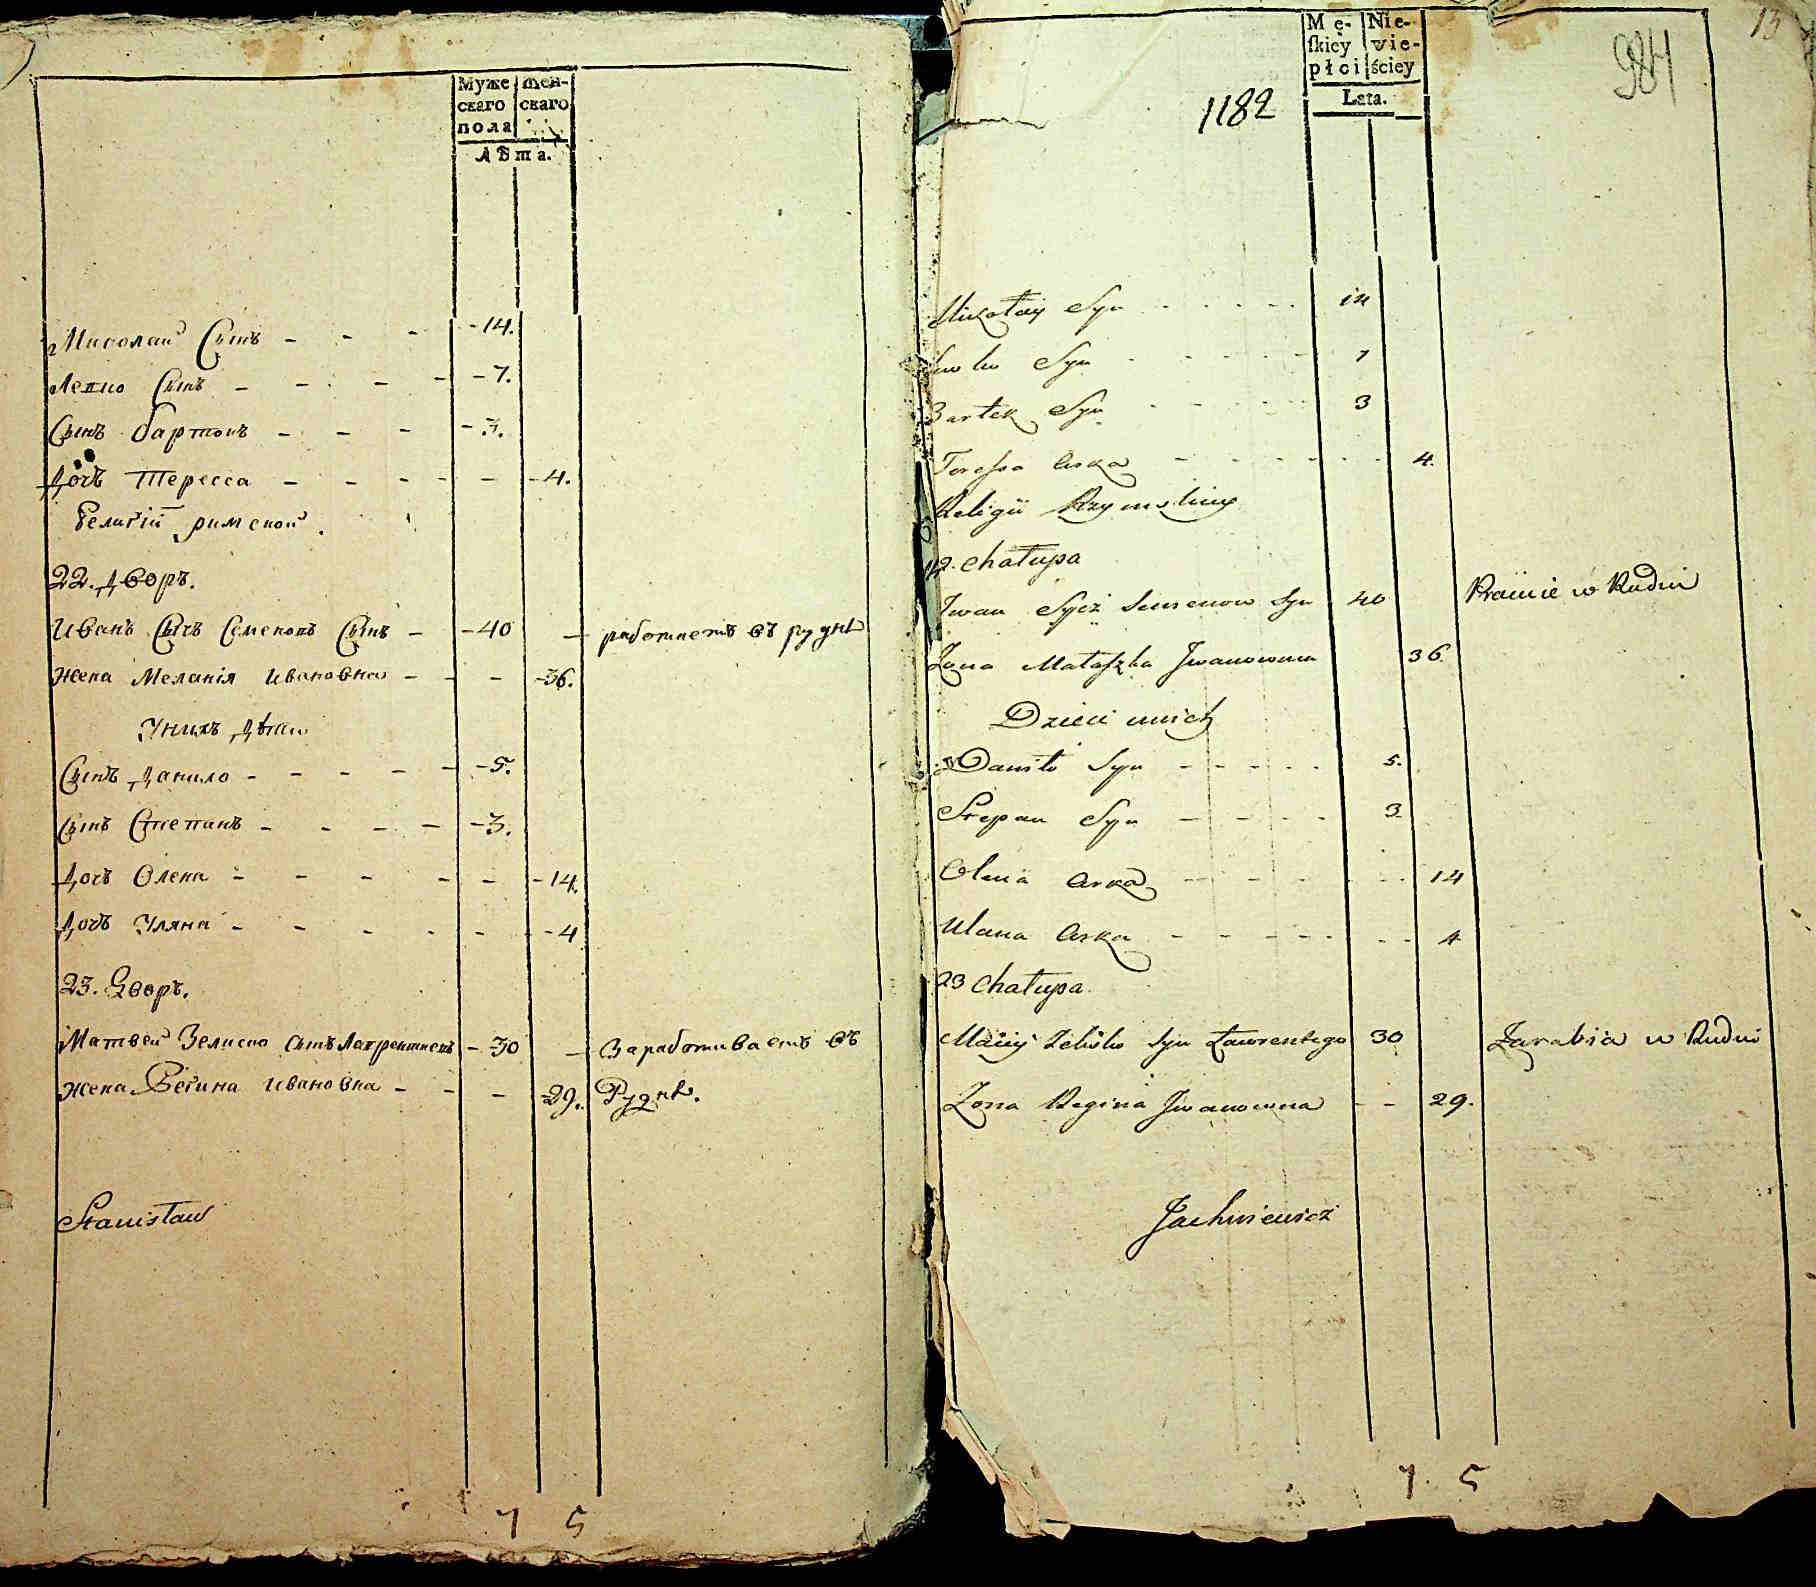 Муже
скаго
пола
Жен-
скаго
Лѣта.
Миколай Сынъ - - - -14.
Сынъ - - - - -7.
Сынъ бартонъ - - - -3.
Дочь Тересса - - - - - -4.
Религіи римской.
22. Дворъ.
Иванъ Сычъ Семеновъ Сынъ - -40 - работаетъ въ руднѣ
Жена Меланія Ивановна - - - -36.
Унихъ дѣти
Сынъ Данило - - - - - -5.
Сынъ Степанъ - - - - -3.
Дочь Олена - - - - - -14.
Дочь Уляна - - - - - -4
23. Дворъ.
Матвей Зелиско сынъ - 30 - Заработиваетъ въ
Жена Регина Ивановна - - - -29. Руднѣ.
Stanisław
7 5
13
984
1182
Mę-
ſkiéy
płci
Nie-
wie-
ściey
Lata.
Mikołay Syn - - - - 14
Syn - - - - 7
Bartek Syn - - - - 3
Teressa Curka - - - - - 4.
Religii Rzymskiey
chałupa
Jwan Sycz Semenow Syn 40 w Rudni
Żona Jwanowna 36.
Dzieci unich
Daniło Syn - - - - - 5.
Stepan Syn - - - - 3
Olena Curka - - - - - - 14
Ulana Curka - - - - - - - 4
23 Chałupa
Maciey Zelisko Syn Ławrentego 30 Zarabia w Rudni
Żona Regina Jwanowna - - 29.
Jachniewicz
7 5